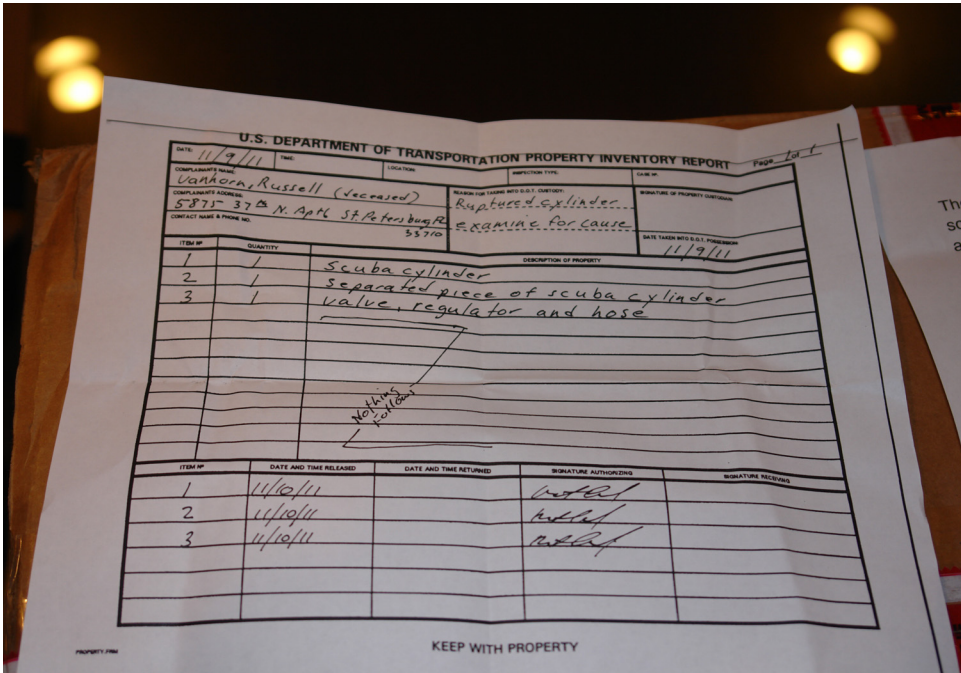 U.S. DEPARTMENT OF TRANSPORTATION PROPERTY INVENTORY REPORT
Page 1 of 1
DATE: 11/9/11 TIME: LOCATION: INSPECTION TYPE: CASE Nº
COMPLAINANTS NAME:
Vanhorn, Russell (deceased)
COMPLAINANTS ADDRESS:
5875 37th N. Apt6 St Petersburg FL
33710
CONTACT NAME & PHONE NO.
REASON FOR TAKING INTO D.O.T. CUSTODY:
Ruptured cylinder
examine for cause
SIGNATURE OF PROPERTY CUSTODIAN:
DATE TAKEN INTO D.O.T. POSSESSION:
11/9/11
ITEM Nº QUANTITY DESCRIPTION OF PROPERTY
1 1 Scuba cylinder
2 1 separated piece of scuba cylinder
3 1 valve, regulator and hose
Nothing
Follows
ITEM Nº DATE AND TIME RELEASED DATE AND TIME RETURNED SIGNATURE AUTHORIZING SIGNATURE RECEIVING
1 11/10/11
2 11/10/11
3 11/10/11
PROPERTY.FRM
KEEP WITH PROPERTY